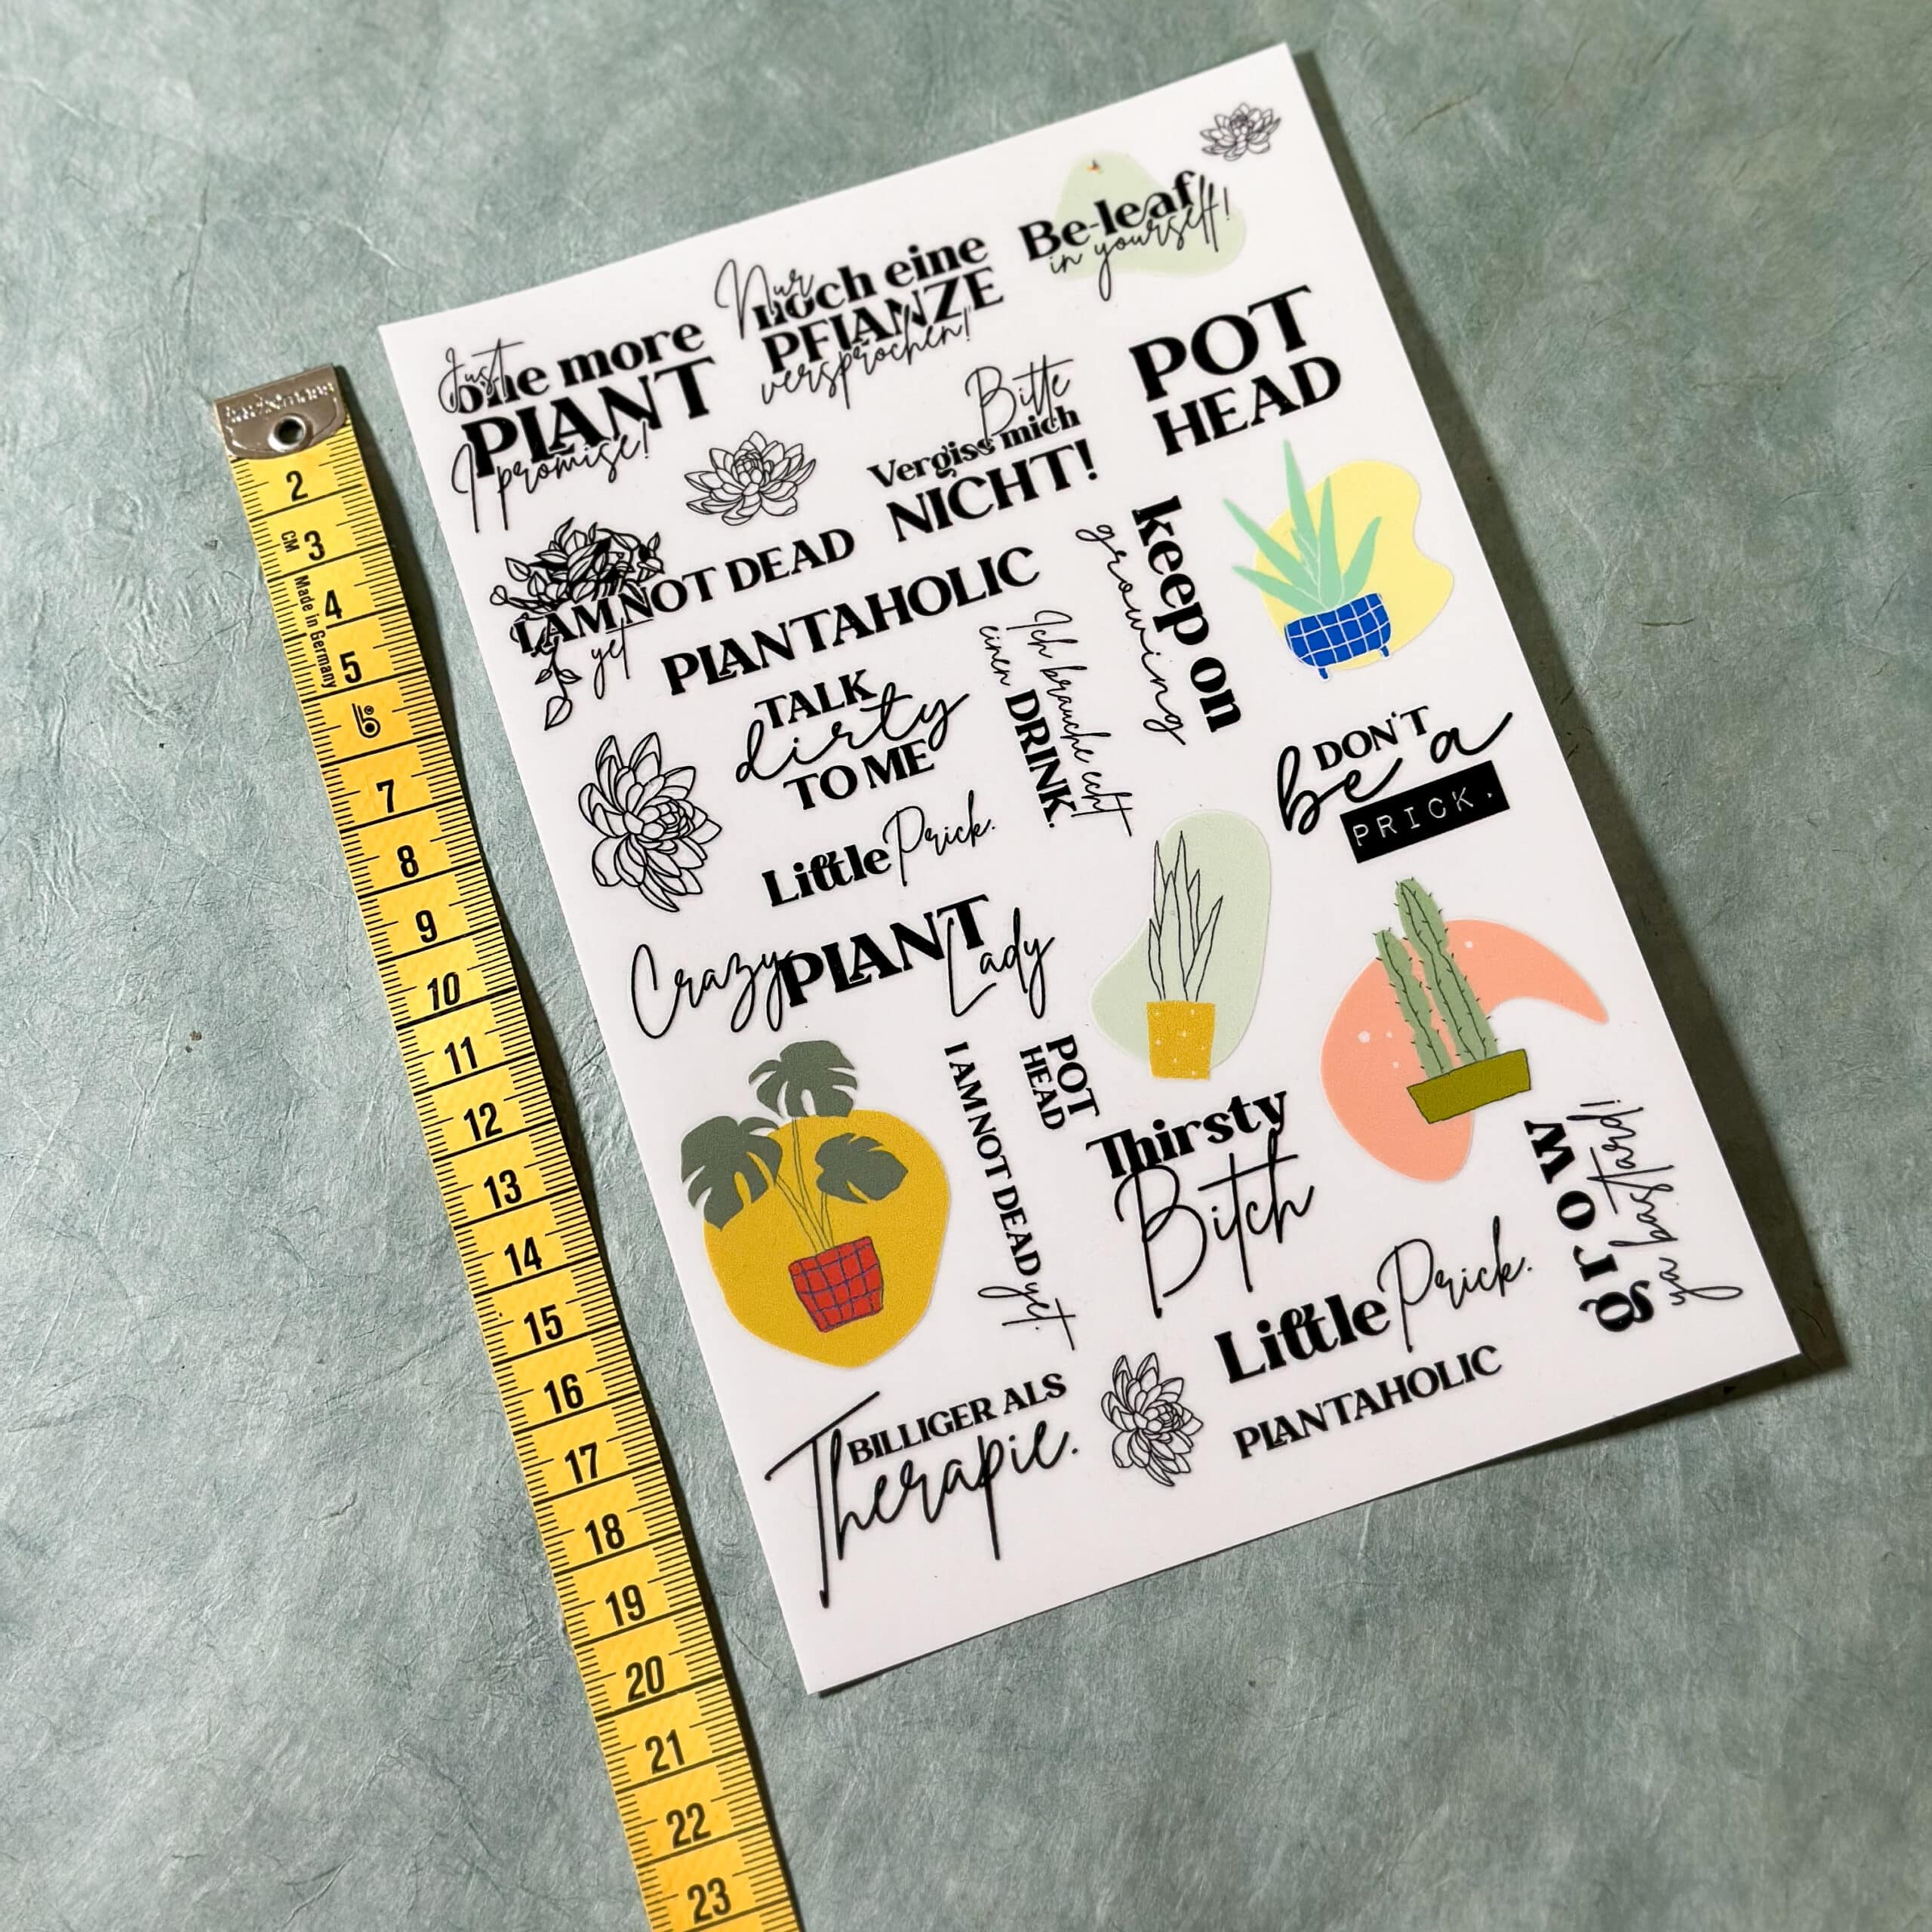 Be-leaf
in yourself!
Nur
noch eine
PFLANZE
versprochen!
Just
one more
PLANT
I promise!
POT
HEAD
Bitte
Vergiss mich
NICHT!
I AM NOT DEAD
yet
PLANTAHOLIC
keep on
growing
TALK
dirty
TO ME
Ich brauche echt
einen DRINK.
DON'T
be a
PRICK.
Little Prick.
Crazy PLANT Lady
POT
HEAD
I AM NOT DEAD yet.
Thirsty
Bitch
grow
ya bastard!
Little Prick.
PLANTAHOLIC
BILLIGER ALS
Therapie.
2
CM 3
4
Made in Germany
5
6
7
8
9
10
11
12
13
14
15
16
17
18
19
20
21
22
23